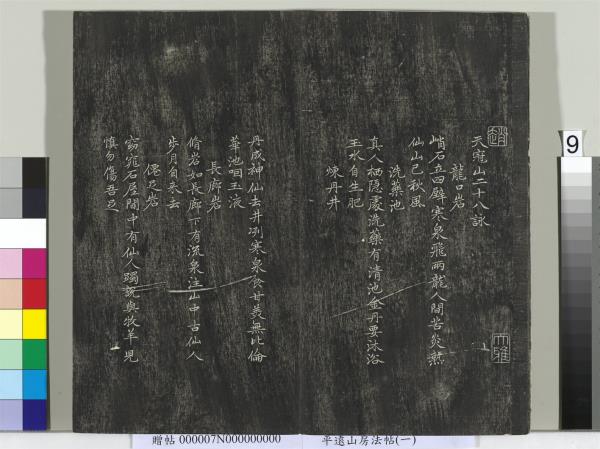 趙
大雅
天冠山二十八詠
龍口岩
峭石立四壁寒泉飛兩龍人間苦炎熱
仙山已秋風
洗藥池
真人栖隱處洗藥有清池金丹要沐浴
玉水自生肥
煉丹井
丹成神仙去井冽寒泉食甘美無比倫
華池咽玉液
長廊岩
脩岩如長廊下有流泉注山中古仙人
步月自来去
僊足岩
窈窕石屋間中有仙人躅說與牧羊兒
慎勿傷吾足
9
贈帖 000007N000000000 平遠山房法帖(一)